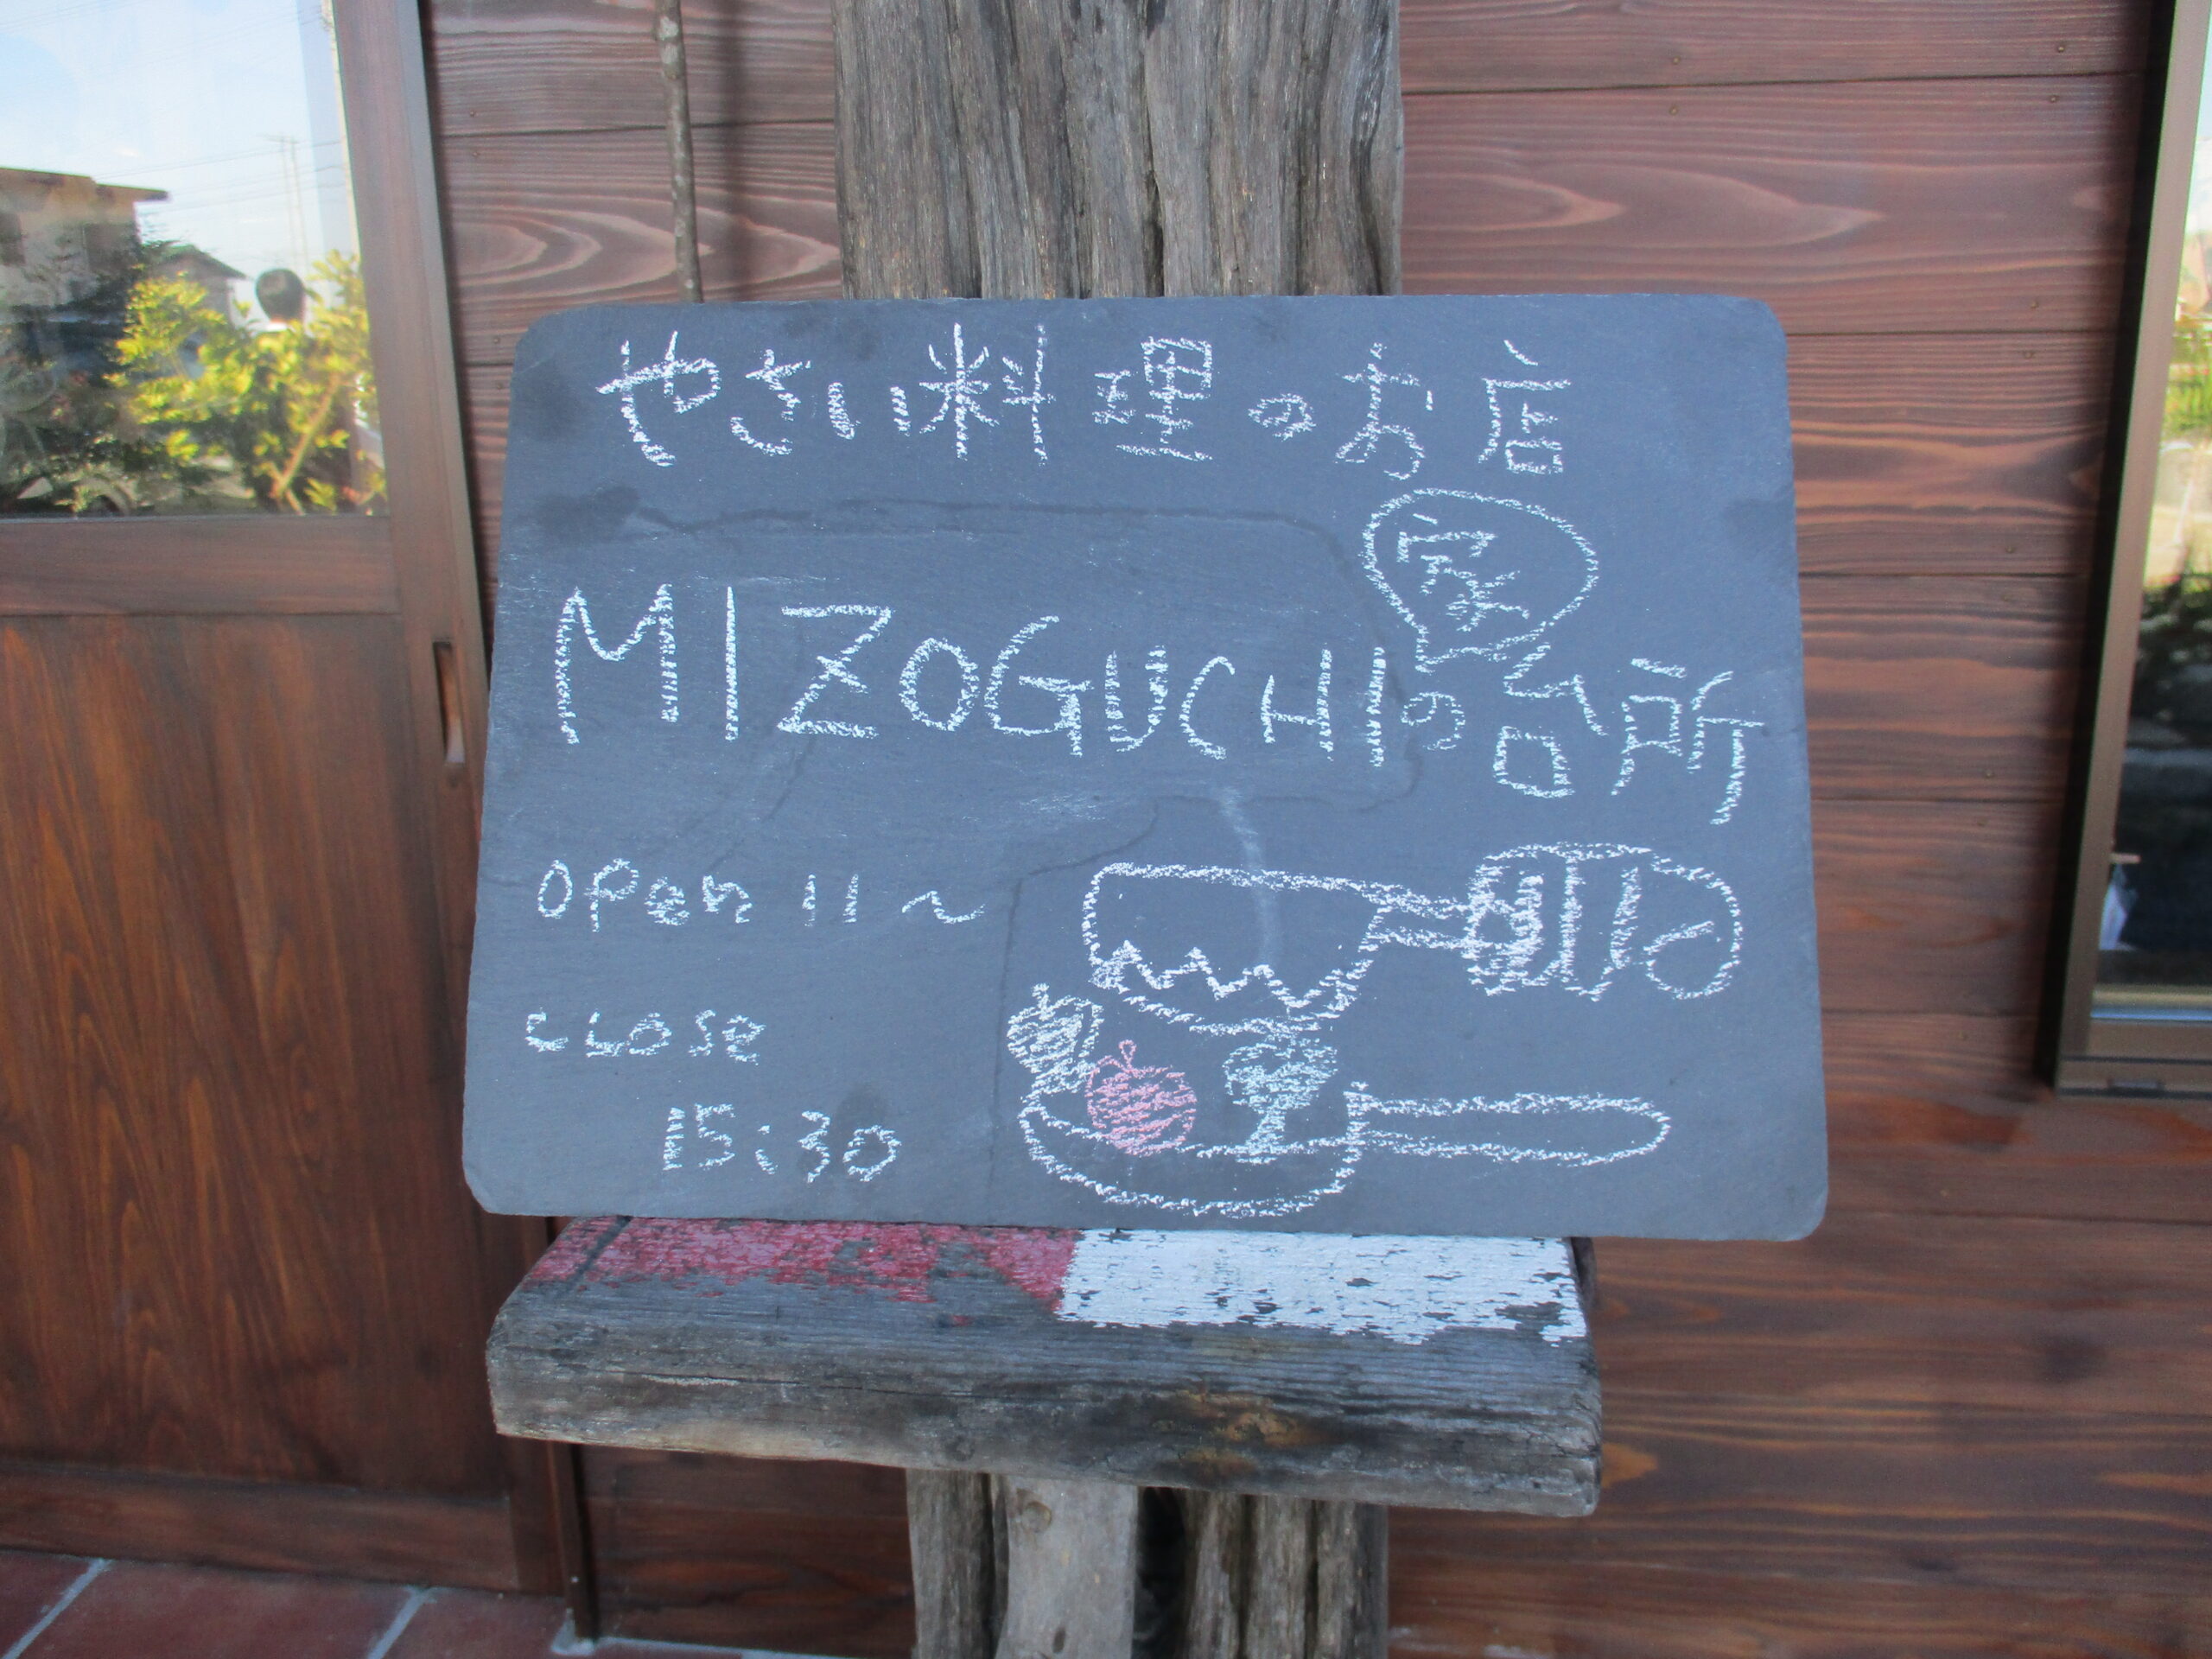 やさい料理のお店
MIZOGUCHI家の台所
open 11～
CLOSe
15:30